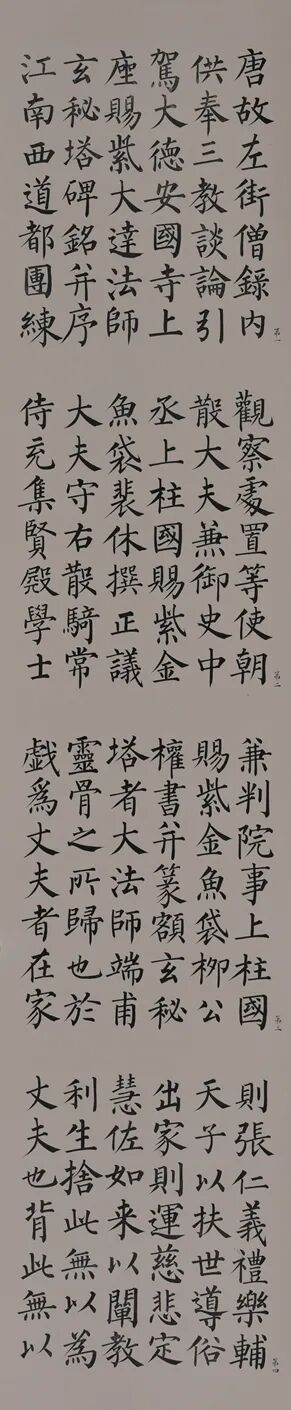 唐故左街僧錄內
供奉三教談論引
駕大德安國寺上
座賜紫大達法師
玄秘塔碑銘并序
江南西道都團練
第一
觀察處置等使朝
散大夫兼御史中
丞上柱國賜紫金
魚袋裴休撰正議
大夫守右散騎常
侍充集賢殿學士
第二
兼判院事上柱國
賜紫金魚袋柳公
權書并篆額玄秘
塔者大法師端甫
靈骨之所歸也於
戲為丈夫者在家
第三
則張仁義禮樂輔
天子以扶世導俗
出家則運慈悲定
慧佐如来以闡教
利生捨此無以為
丈夫也背此無以
第四